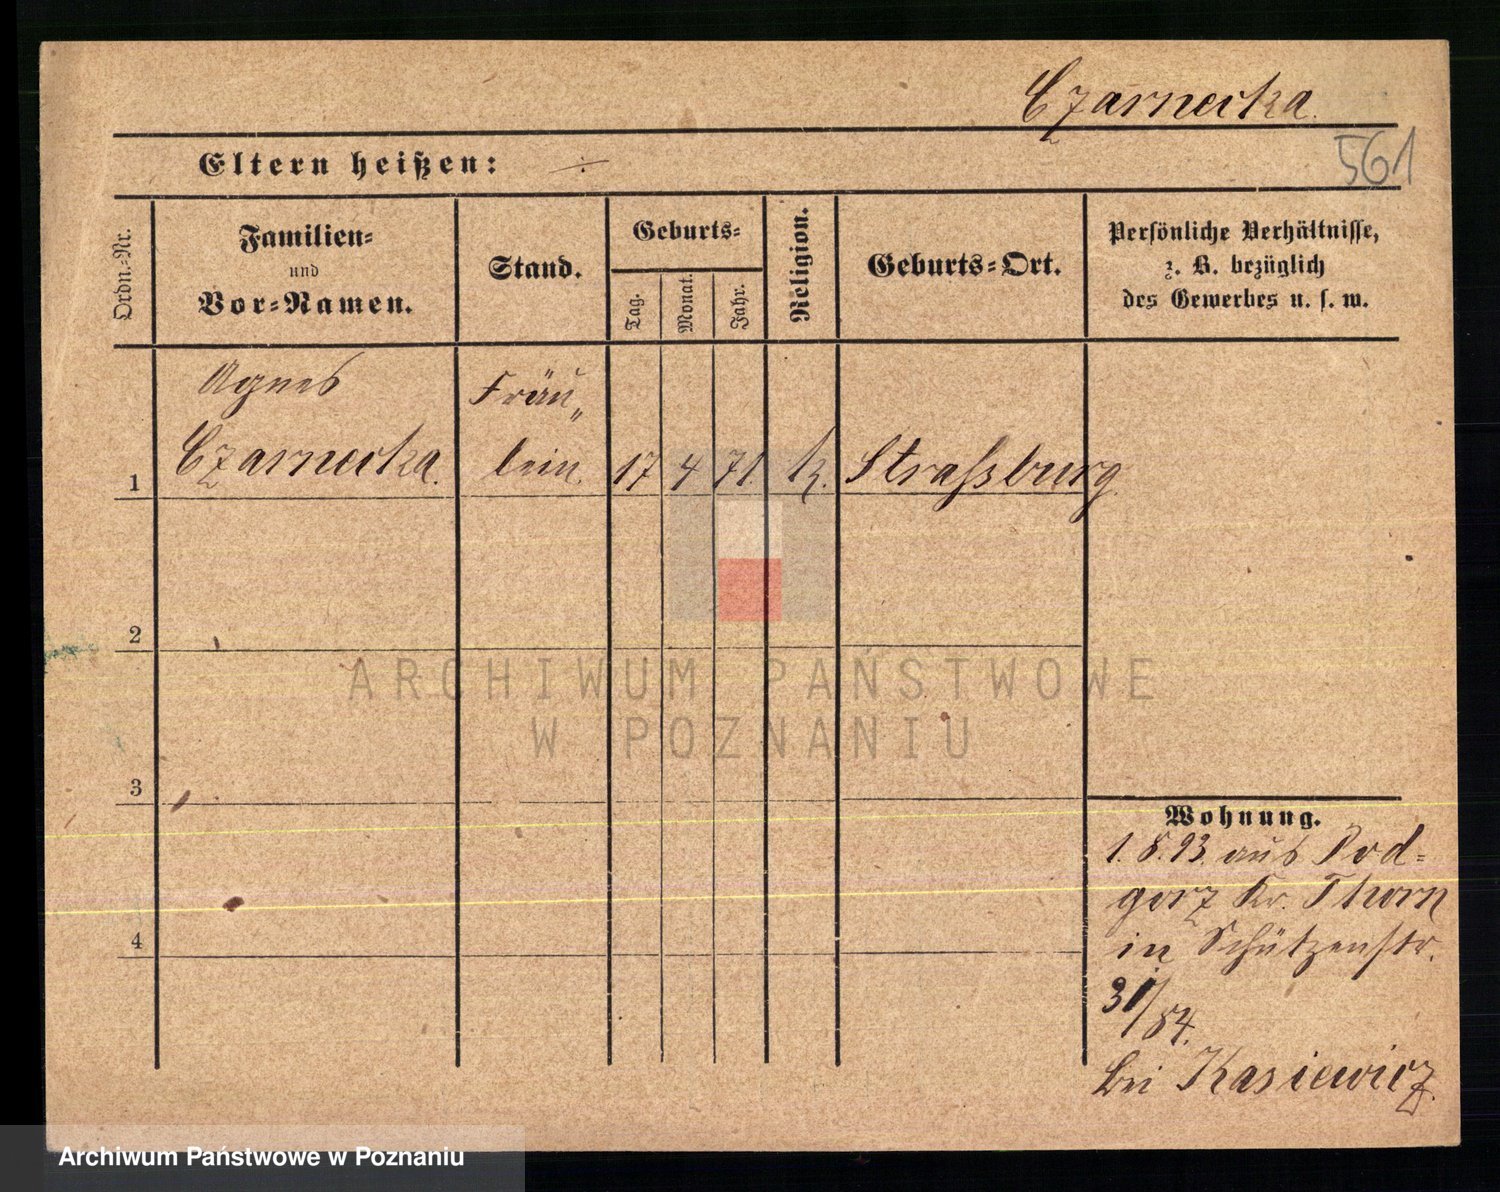 Czarnecka.
561
Eltern heißen: ÷
Ordn.-Nr.
Familien-
und
Vor-Namen.
Stand.
Geburts-
Tag.
Monat.
Jahr.
Religion.
Geburts-Ort.
Persönliche Verhältnisse,
z. B. bezüglich
des Gewerbes u. s. w.
Agnes Fräu„
1 Czarnecka. lein. 17 4 71. k. Straßburg
2
3
4
Wohnung.
1. 8. 93. aus Pod-
gorz Kr. Thorn
in Schützenstr.
31/84.
bei Kasiewicz.
ARCHIWUM PAŃSTWOWE
W POZNANIU
Archiwum Państwowe w Poznaniu